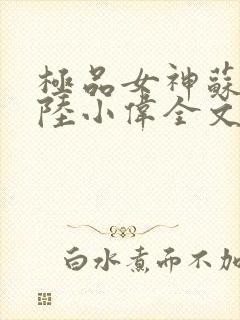 極品女神蘇
陸小偉全文
白水煮而不加